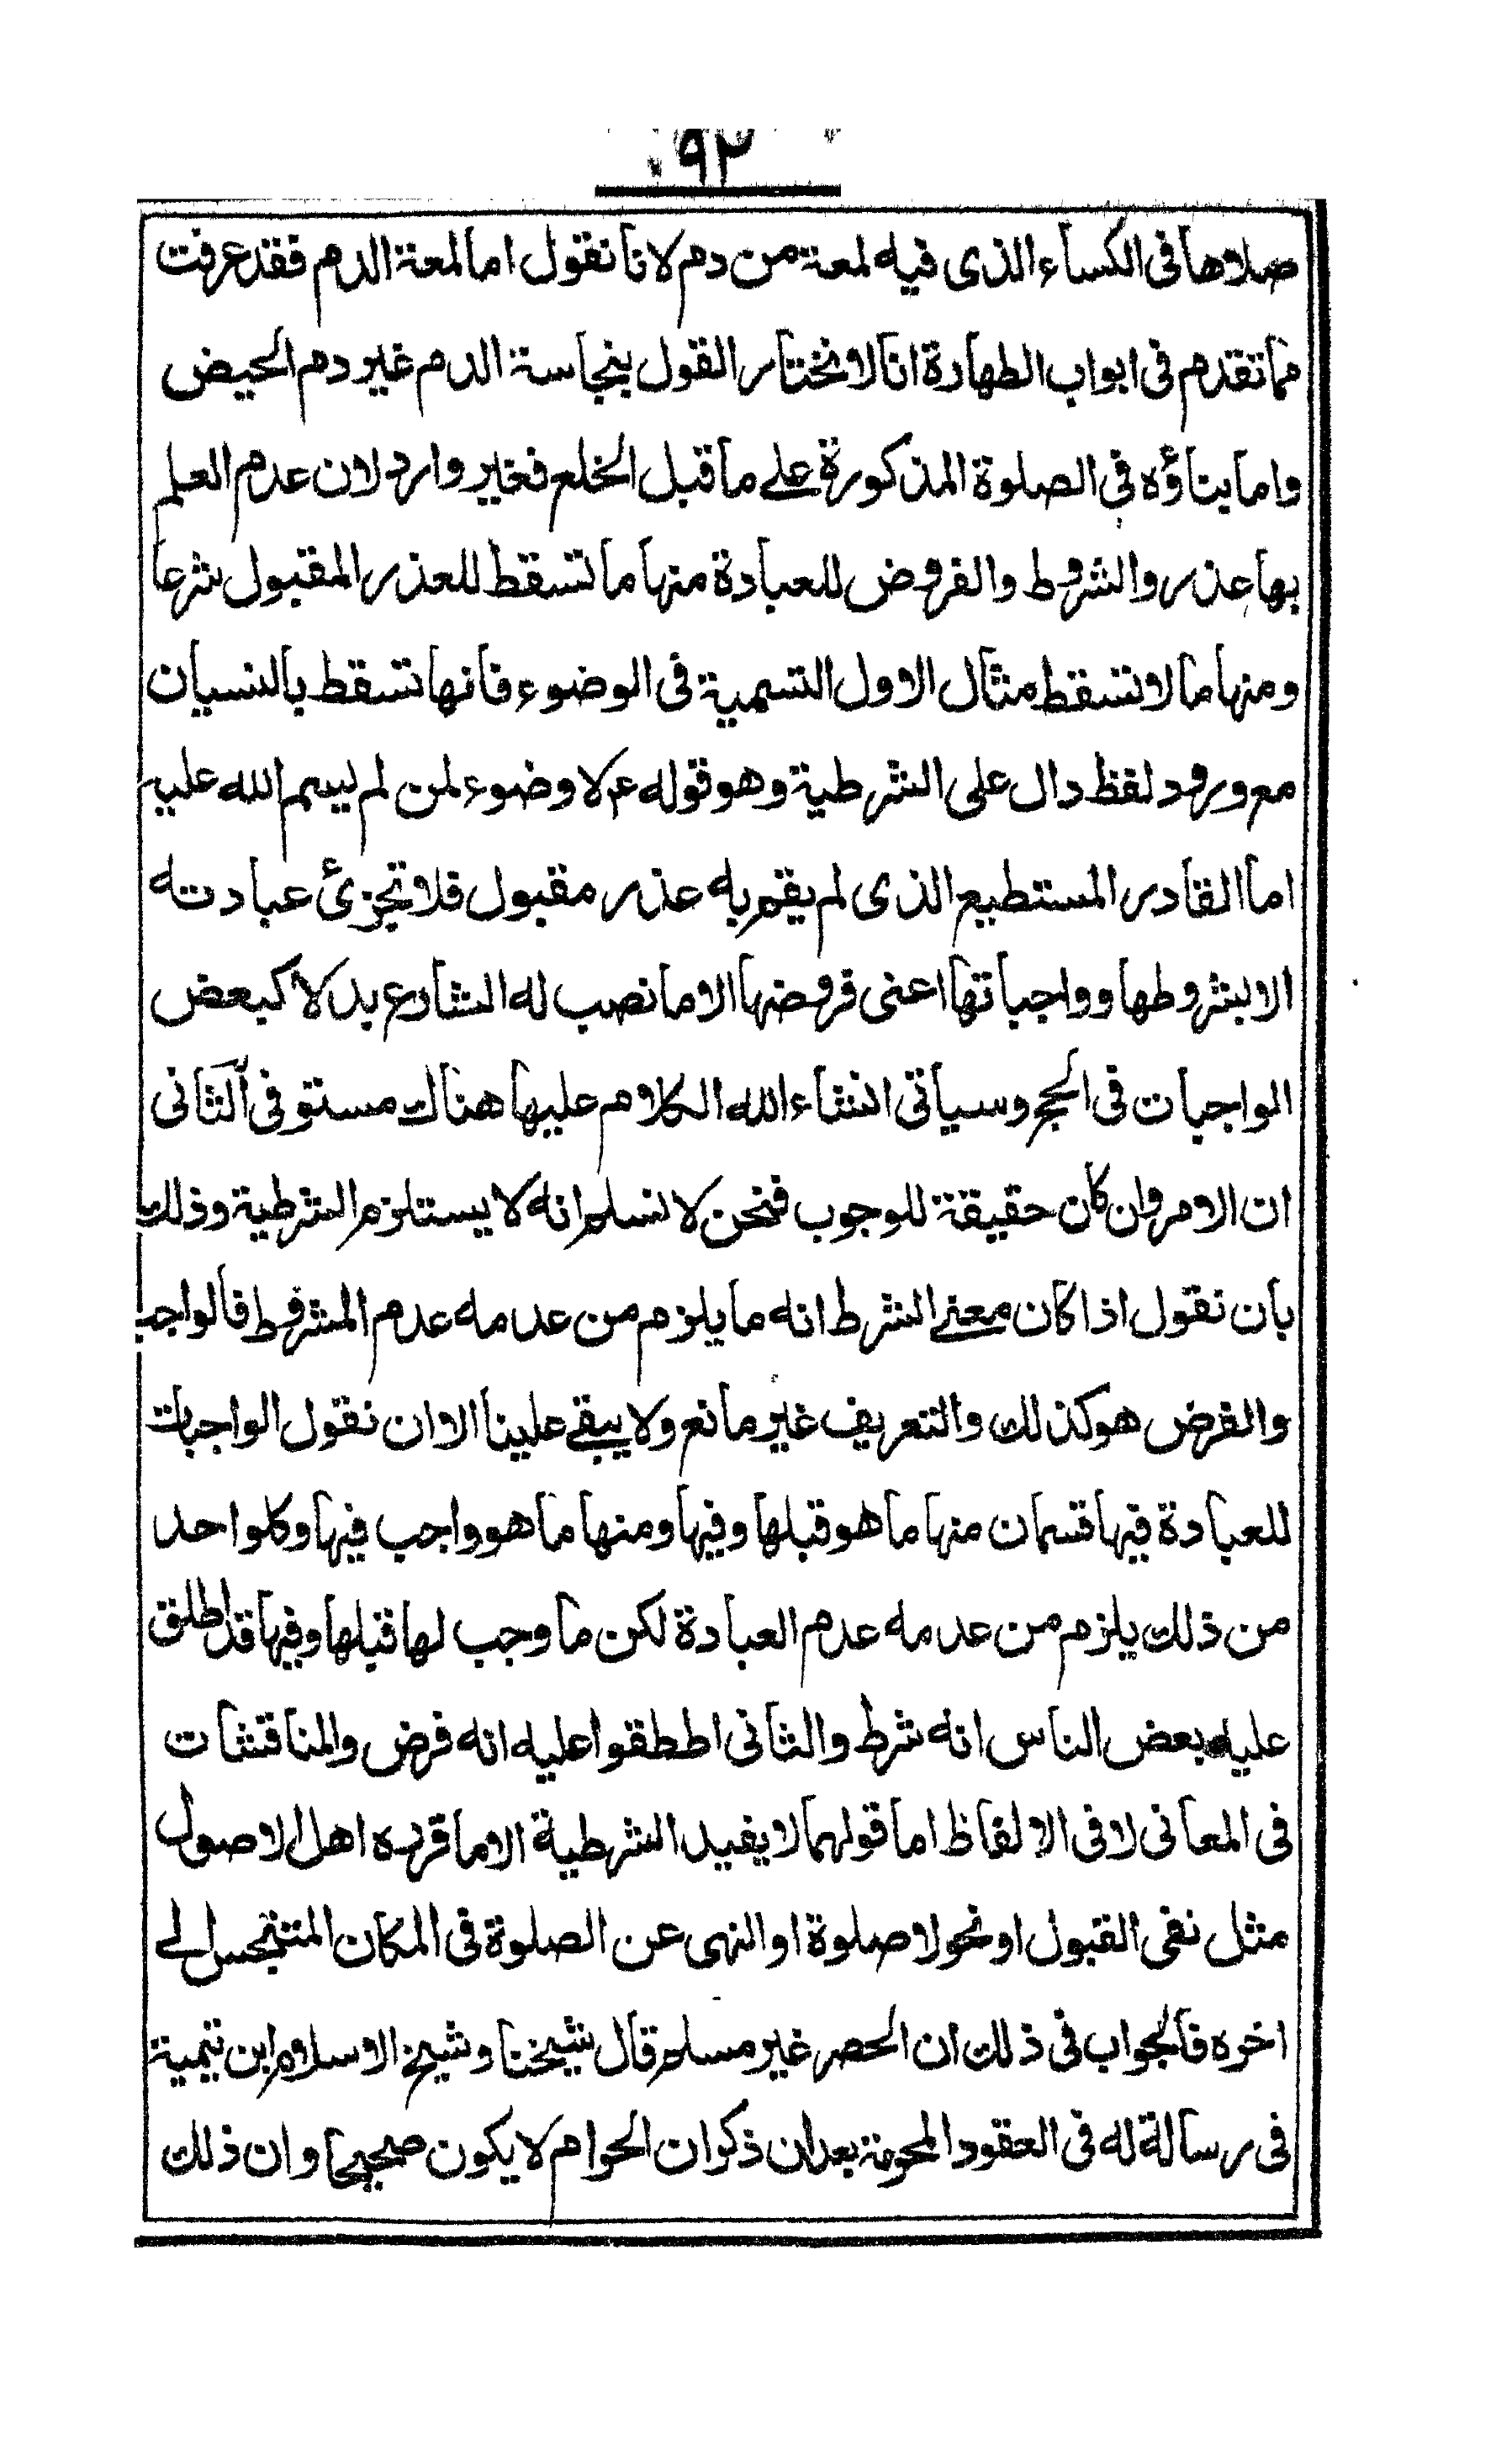 ٩٢
صلاها فى الكساء الذى فيه لمعة من دم لانا نقول اما لمعة الدم فقد عرفت
مما تقدم فى ابواب الطهارة انا لا نختار القول بنجاسة الدم غير دم الحيض
واما بناؤه في الصلوة المذكورة على ما قبل الخلع فغير وارد لان عدم العلم
بها عذر والشروط والفروض للعبادة منها ما تسقط للعذر المقبول شرعا
ومنها ما لا تسقط مثال الاول التسمية فى الوضوء فانها تسقط بالنسيان
مع ورود لفظ دال على الشرطية وهو قوله عم لا وضوء لمن لم يسم الله عليه
اما القادر المستطيع الذى لم يقم به عذر مقبول فلا تجزئ عبادته
الا بشروطها وواجباتها اعنى فروضها الا ما نصب له الشارع بدلا كبعض
الواجبات فى الحج وسيأتى انشاء الله الكلام عليها هناك مستوفى الثانى
ان الامر وان كان حقيقة للوجوب فنحن لا نسلم انه لا يستلزم الشرطية وذلك
بان نقول اذا كان معنى الشرط انه ما يلزم من عدمه عدم المشروط فالواجب
والفرض هو كذلك والتعريف غير مانع ولا يبقى علينا الا ان نقول الواجبات
للعبادة فيها قسمان منها ما هو قبلها وفيها ومنها ما هو واجب فيها وكلواحد
من ذلك يلزم من عدمه عدم العبادة لكن ما وجب لها قبلها وفيها قد اطلق
عليه بعض الناس انه شرط والثانى اططقوا عليه انه فرض والمناقشات
فى المعانى لا فى الالفاظ اما قولهما لا يفيد الشرطية الا ما قرره اهل الاصول
مثل نفى القبول او نحو لا صلوة او النهى عن الصلوة فى المكان المتنجس الى
اخره فالجواب فى ذلك ان الحصر غير مسلم قال شيخنا وشيخ الاسلام ابن تيمية
فى رسالة له فى العقود المحرمة بعد ان ذكر ان الحرام لا يكون صحيحا وان ذلك